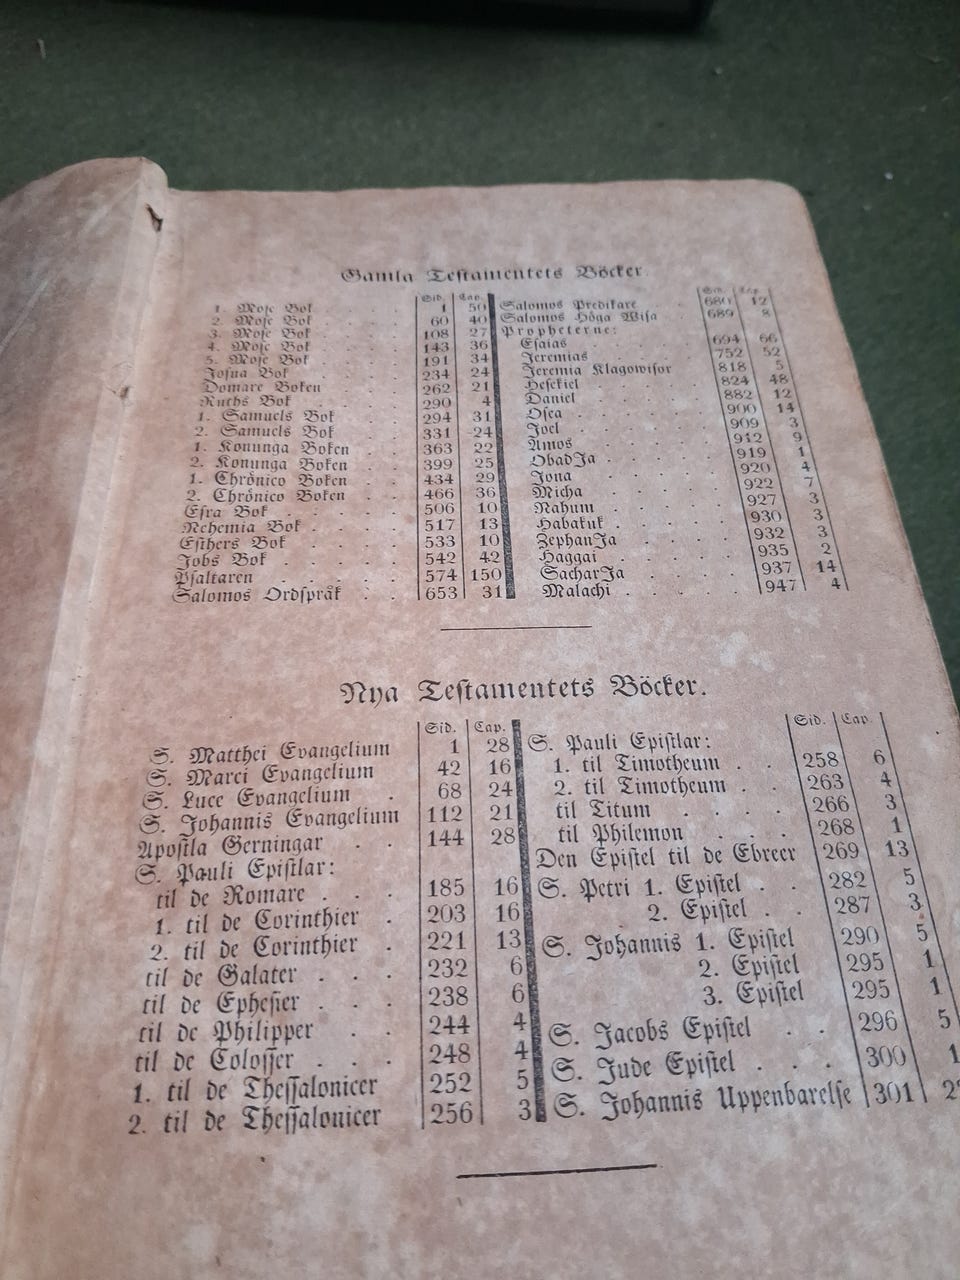 Gamla Testamentets Böcker.
Sid. Cap.
1. Mose Bok . . . . 1 50
2. Mose Bok . . . . 60 40
3. Mose Bok . . . . 108 27
4. Mose Bok . . . . 143 36
5. Mose Bok . . . . 191 34
Josua Bok . . . . 234 24
Domare Boken . . . 262 21
Ruths Bok . . . . 290 4
1. Samuels Bok . . . 294 31
2. Samuels Bok . . . 331 24
1. Konunga Boken . . 363 22
2. Konunga Boken . . 399 25
1. Chrönico Boken . . 434 29
2. Chrönico Boken . . 466 36
Esra Bok . . . . . 506 10
Nehemia Bok . . . . 517 13
Esthers Bok . . . . 533 10
Jobs Bok . . . . . 542 42
Psaltaren . . . . . 574 150
Salomos Ordspråk . . 653 31
Sid. Cap.
Salomos Predikare . . 680 12
Salomos Höga Wisa . . 689 8
Propheterne:
Esaias . . . . . 694 66
Jeremias . . . . . 752 52
Jeremia Klagowisor . . 818 5
Hesekiel . . . . . 824 48
Daniel . . . . . 882 12
Osea . . . . . 900 14
Joel . . . . . 909 3
Amos . . . . . 912 9
ObadJa . . . . . 919 1
Jona . . . . . 920 4
Micha . . . . . 922 7
Nahum . . . . . 927 3
Habakuk . . . . . 930 3
ZephanJa . . . . 932 3
Haggai . . . . . 935 2
SacharJa . . . . 937 14
Malachi . . . . . 947 4
Nya Testamentets Böcker.
Sid. Cap.
S. Matthei Evangelium 1 28
S. Marci Evangelium 42 16
S. Luce Evangelium . 68 24
S. Johannis Evangelium 112 21
Apostla Gerningar . . 144 28
S. Pauli Epistlar:
til de Romare . . . 185 16
1. til de Corinthier . 203 16
2. til de Corinthier . 221 13
til de Galater . . . 232 6
til de Ephesier . . . 238 6
til de Philipper . . 244 4
til de Colosser . . . 248 4
1. til de Thessalonicer 252 5
2. til de Thessalonicer 256 3
Sid. Cap.
S. Pauli Epistlar:
1. til Timotheum . . 258 6
2. til Timotheum . . 263 4
til Titum . . . . 266 3
til Philemon . . . 268 1
Den Epistel til de Ebreer 269 13
S. Petri 1. Epistel . . 282 5
2. Epistel . . 287 3
S. Johannis 1. Epistel 290 5
2. Epistel 295 1
3. Epistel 295 1
S. Jacobs Epistel . . 296 5
S. Jude Epistel . . . 300 1
S. Johannis Uppenbarelse 301